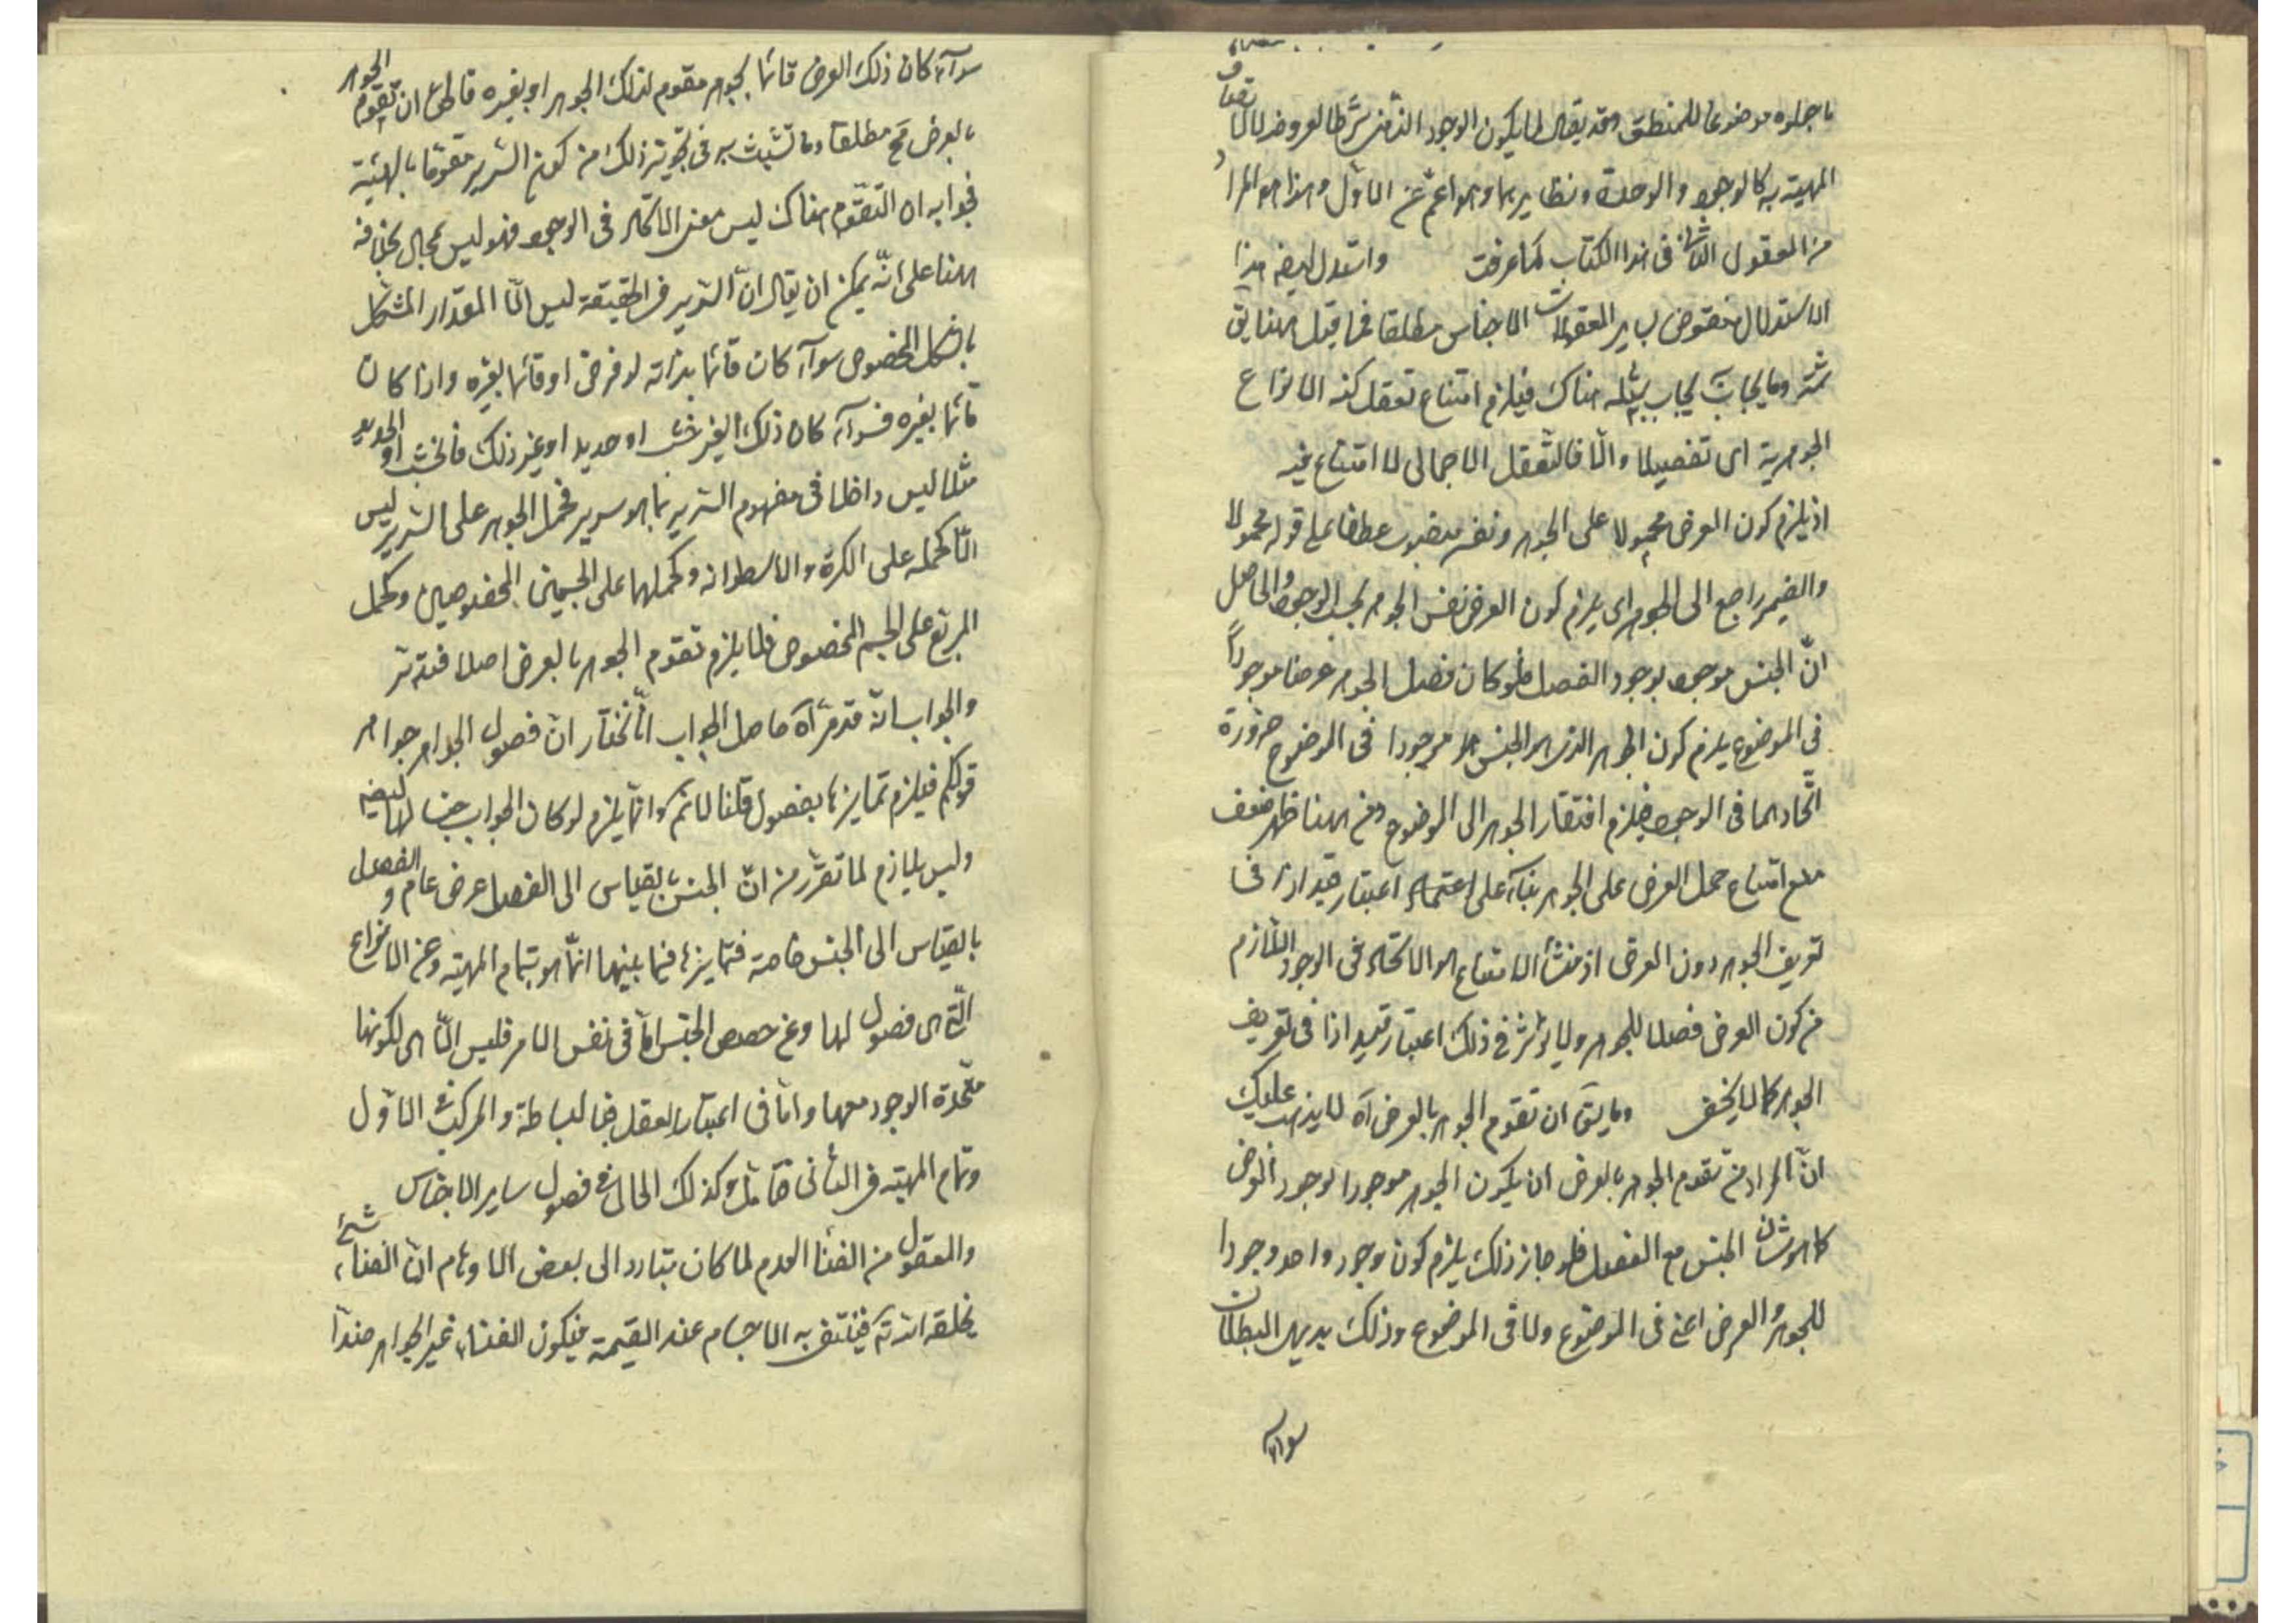 ما جعلوه موضوعا للمنطق وقد يقال لما يكون الوجود الذهنى شرطا لعروضه لا لاتصاف
المهية به كالوجود والوحدة ونظايرهما وهو اعم من الاول وهذا هو المراد
من المعقول الثانى فى هذا الكتاب كما عرفت واستدل ايضه هذا
الاستدلال منقوض بساير المقولات الاجناس مطلقا فما قيل ههنا يق
ثمه وما يجاب يجاب بمثله هناك فيلزم امتناع تعقل كنه الانواع
الجوهرية اى تفصيلا والا فالتعقل الاجمالى لا امتناع فيه
اذ يلزم كون العرض محمولا على الجوهر ونفسه منصوب عطفا على قوله محمولا
والضمير راجع الى الجوهر اى يلزم كون العرض نفس الجوهر بحسب الوجود والحاصل
ان الجنس موجود بوجود الفصل فلو كان فصل الجوهر عرضا موجودا
فى الموضوع يلزم كون الجوهر الذى هو الجنس موجودا فى الموضوع ضرورة
اتحادهما فى الوجود فيلزم افتقار الجوهر الى الموضوع ومن ههنا ظهر ضعف
منع امتناع حمل العرض على الجوهر بناء على اعتبار قيد اذا فى
تعريف الجوهر دون العرض اذ منشأ الامتناع هو الاتحاد فى الوجود اللازم
من كون العرض فصلا للجوهر ولا يؤثر فى ذلك اعتبار قيد اذا فى تعريف
الجوهر كما لا يخفى وما يق ان تقوم الجوهر بالعرض آه لا يذهب عليك
ان المراد من تقوم الجوهر بالعرض ان يكون الجوهر موجودا بوجود العرض
كما هو شان الجنس مع الفصل فلو جاز ذلك يلزم كون وجود واحد وجودا
للجوهر والعرض اعنى فى الموضوع ولا فى الموضوع وذلك بديهى البطلان
سواء
سواء كان ذلك العرض قائما بجوهر مقوم لذلك الجوهر او بغيره فالحق ان تقوم الجوهر
بالعرض مح مطلقا وما تشبث به فى تجويز ذلك من كون السرير متقوما بالهيئة
فجوابه ان التقوم هناك ليس معنى الاتحاد فى الوجود فهو ليس بمحال بخلافه
ههنا على انه يمكن ان يقال ان السرير فى الحقيقة ليس الا المقدار المشكل
بالشكل المخصوص سواء كان قائما بذاته لو فرض او قائما بغيره واذا كان
قائما بغيره فسواء كان ذلك الغير خشب او حديد او غير ذلك فالخشب او الحديد
مثلا ليس داخلا فى مفهوم السرير بما هو سرير فحمل الجوهر على السرير ليس
الا كحمله على الكرة والاسطوانه وكحملها على الجسمين المخصوصين وكحمل
المربع على الجسم المخصوص فلا يلزم تقوم الجوهر بالعرض اصلا فتدبر
والجواب انه قد مر آه حاصل الجواب انا نختار ان فصول الجواهر جواهر
قولكم فيلزم تمايزها بفصول قلنا لا نم وانما يلزم لو كان الجواهر جنسا لها ايضه
وليس بلازم لما تقرر من ان الجنس بالقياس الى الفصل عرض عام والفصل
بالقياس الى الجنس خاصة فتمايزها فيما بينها انما هو بتمام المهية وعن الانواع
التى هى فصول لها وعن حصص الجنس اما فى نفس الامر فليس الا هى لكونها
متحدة الوجود معها واما فى اعتبار العقل فبالبساطة والتركيب فى الاول
وتمام المهية فى الثانى فتأمل وكذلك الحال فى فصول ساير الاجناس
والمعقول من الفناء العدم لما كان يتبادر الى بعض الاوهام ان الفناء شئ
يخلقه الله تعالى فينتفى به الاجسام عند القيمة فيكون الفناء غير الجواهر ضدا